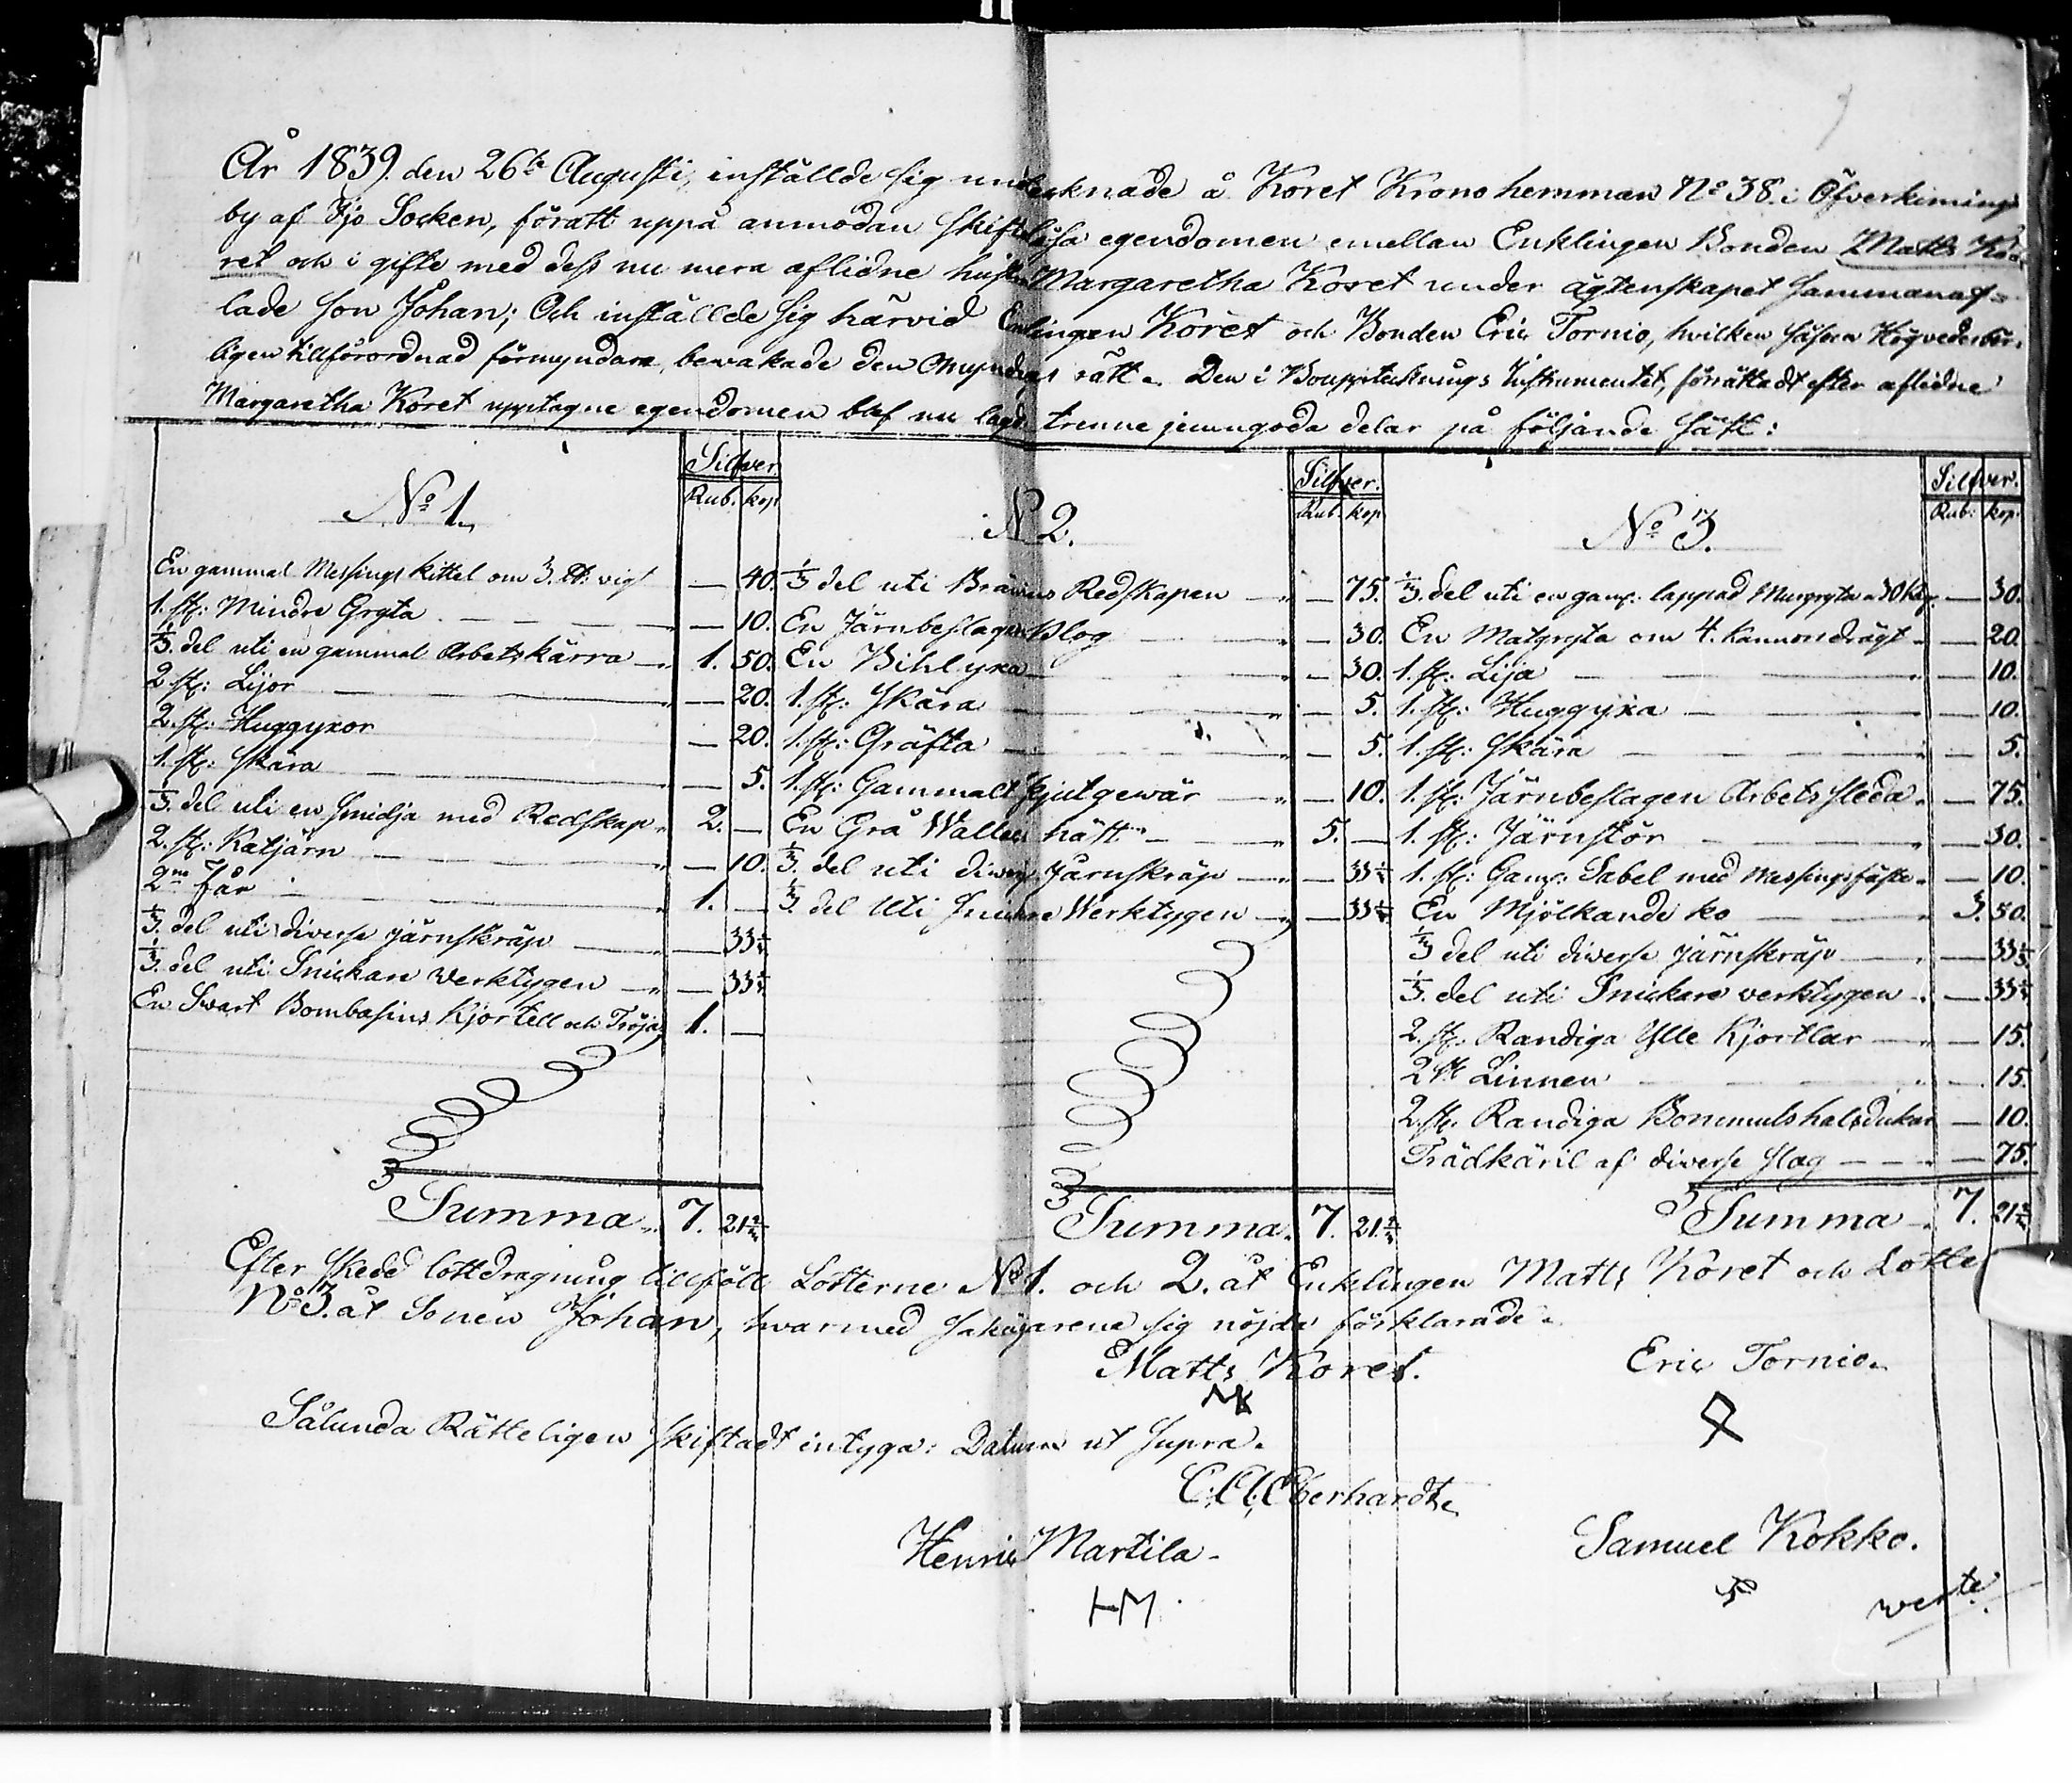 År 1839. den 26te Augusti, inställde sig undertecknade å Koret Krono hemman No 38. i Öfverkiminge
by af Ijo Socken, föratt uppå anmodan skifta lösa egendomen emellan Enklingen Bonden Matts Ko-
ret och i gifte med dess nu mera aflidne hustru Margaretha Koret under ägtenskapet sammanaf-
lade son Johan; Och inställde sig härvid Enklingen Koret och Bonden Eric Tornio, hvilken såsom Högvederbör-
ligen tillförordnad förmyndare, bewakade den Omyndiges rätt. Den i Boupptecknings Instrumentet, förrättadt efter aflidne
Margaretha Koret upptagne egendomen blef nu lagd trenne jemngoda delar på följande sätt:
No 1. Silfver Rub. kop
En gammal Messings kittel om 3. ℔: vigt — 40.
1. st: Mindre Gryta — 10.
1/3. del uti en gammal Arbetskärra 1. 50.
2 st: Lijor — 20.
2. st: Huggyxor — 20.
1. st: Skära — 5.
1/3. del uti en Smidja med Redskap 2. —
2. st: Katjärn — 10.
2ne Får 1. —
1/3. del uti diverse järnskräp — 33 1/3
1/3. del uti Snickare Verktygen — 33 1/3
En Svart Bombasins Kjortell och Tröja 1. —
Summa 7. 21 2/3
N 2. Silfver. Rub. kop
1/3 del uti Brännvins Redskapen — 75.
En Järnbeslagen Plog — 30.
En Bihlyxa — 30.
1. st: Skära — 5.
1. st: Gräfta — 5.
1. st: Gammalt skjutgewär — 10.
En Grå Wallack häst 5. —
1/3. del uti diverse Järnskräp — 33 1/3
1/3. del Uti Snickare Werktygen — 33 1/3
Summa 7. 21 2/3
No 3. Silfver. Rub: kop.
1/3. del uti en gam: lappad Murgryta — 30.
En Matgryta om 4. Kannors drägt — 20.
1. st: Lija — 10.
1. st: Huggyxa — 10.
1. st: Skära — 5.
1. st: Järnbeslagen Arbets släda — 75.
1. st: Järnstör — 30.
1. st: Gam: Sabel med Messingsfäste — 10.
En Mjölkande ko 3. 50.
1/3 del uti diverse järnskräp — 33 1/3
1/3. del uti Snickare verktygen — 33 1/3
2. st: Randiga Ylle Kjortlar — 15.
2 st Linnen — 15.
2. st: Randiga Bommuls halsdukar — 10.
Trädkäril af diverse slag — 75.
Summa 7. 21 2/3
Efter skedd lottdragning tillföll Lotterne No 1. och 2. åt Enklingen Matts Koret och Lotte
No 3. åt Sonen Johan, hvarmed Sakägarena sig nöjda förklarade.
Matts Koret. Eric Tornio.
MK
Sålunda Rätteligen skiftadt intyga: Datum ut Supra.
C. A. Eberhardt.
Henric Martila. Samuel Kokko.
HM
verte